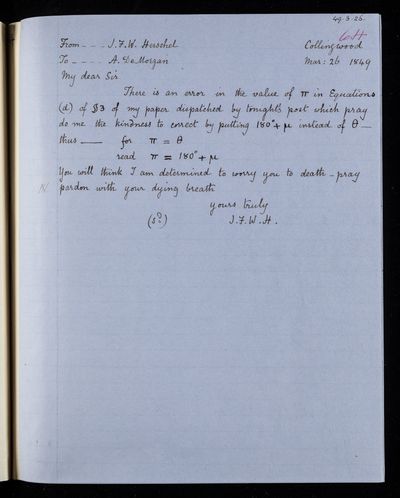 49.3.26.
From - - - J.F.W. Herschel Collingwood
To - - - - A. De Morgan Mar: 26 1849
My dear Sir
There is an error in the value of π in Equations
(d) of §3 of my paper dispatched by tonight's post which pray
do me the kindness to correct by putting 180°+μ instead of θ —
thus —— for π = θ
read π = 180°+μ
You will think I am determined to worry you to death - pray
pardon with your dying breath
yours truly
(sd) J.F.W.H.